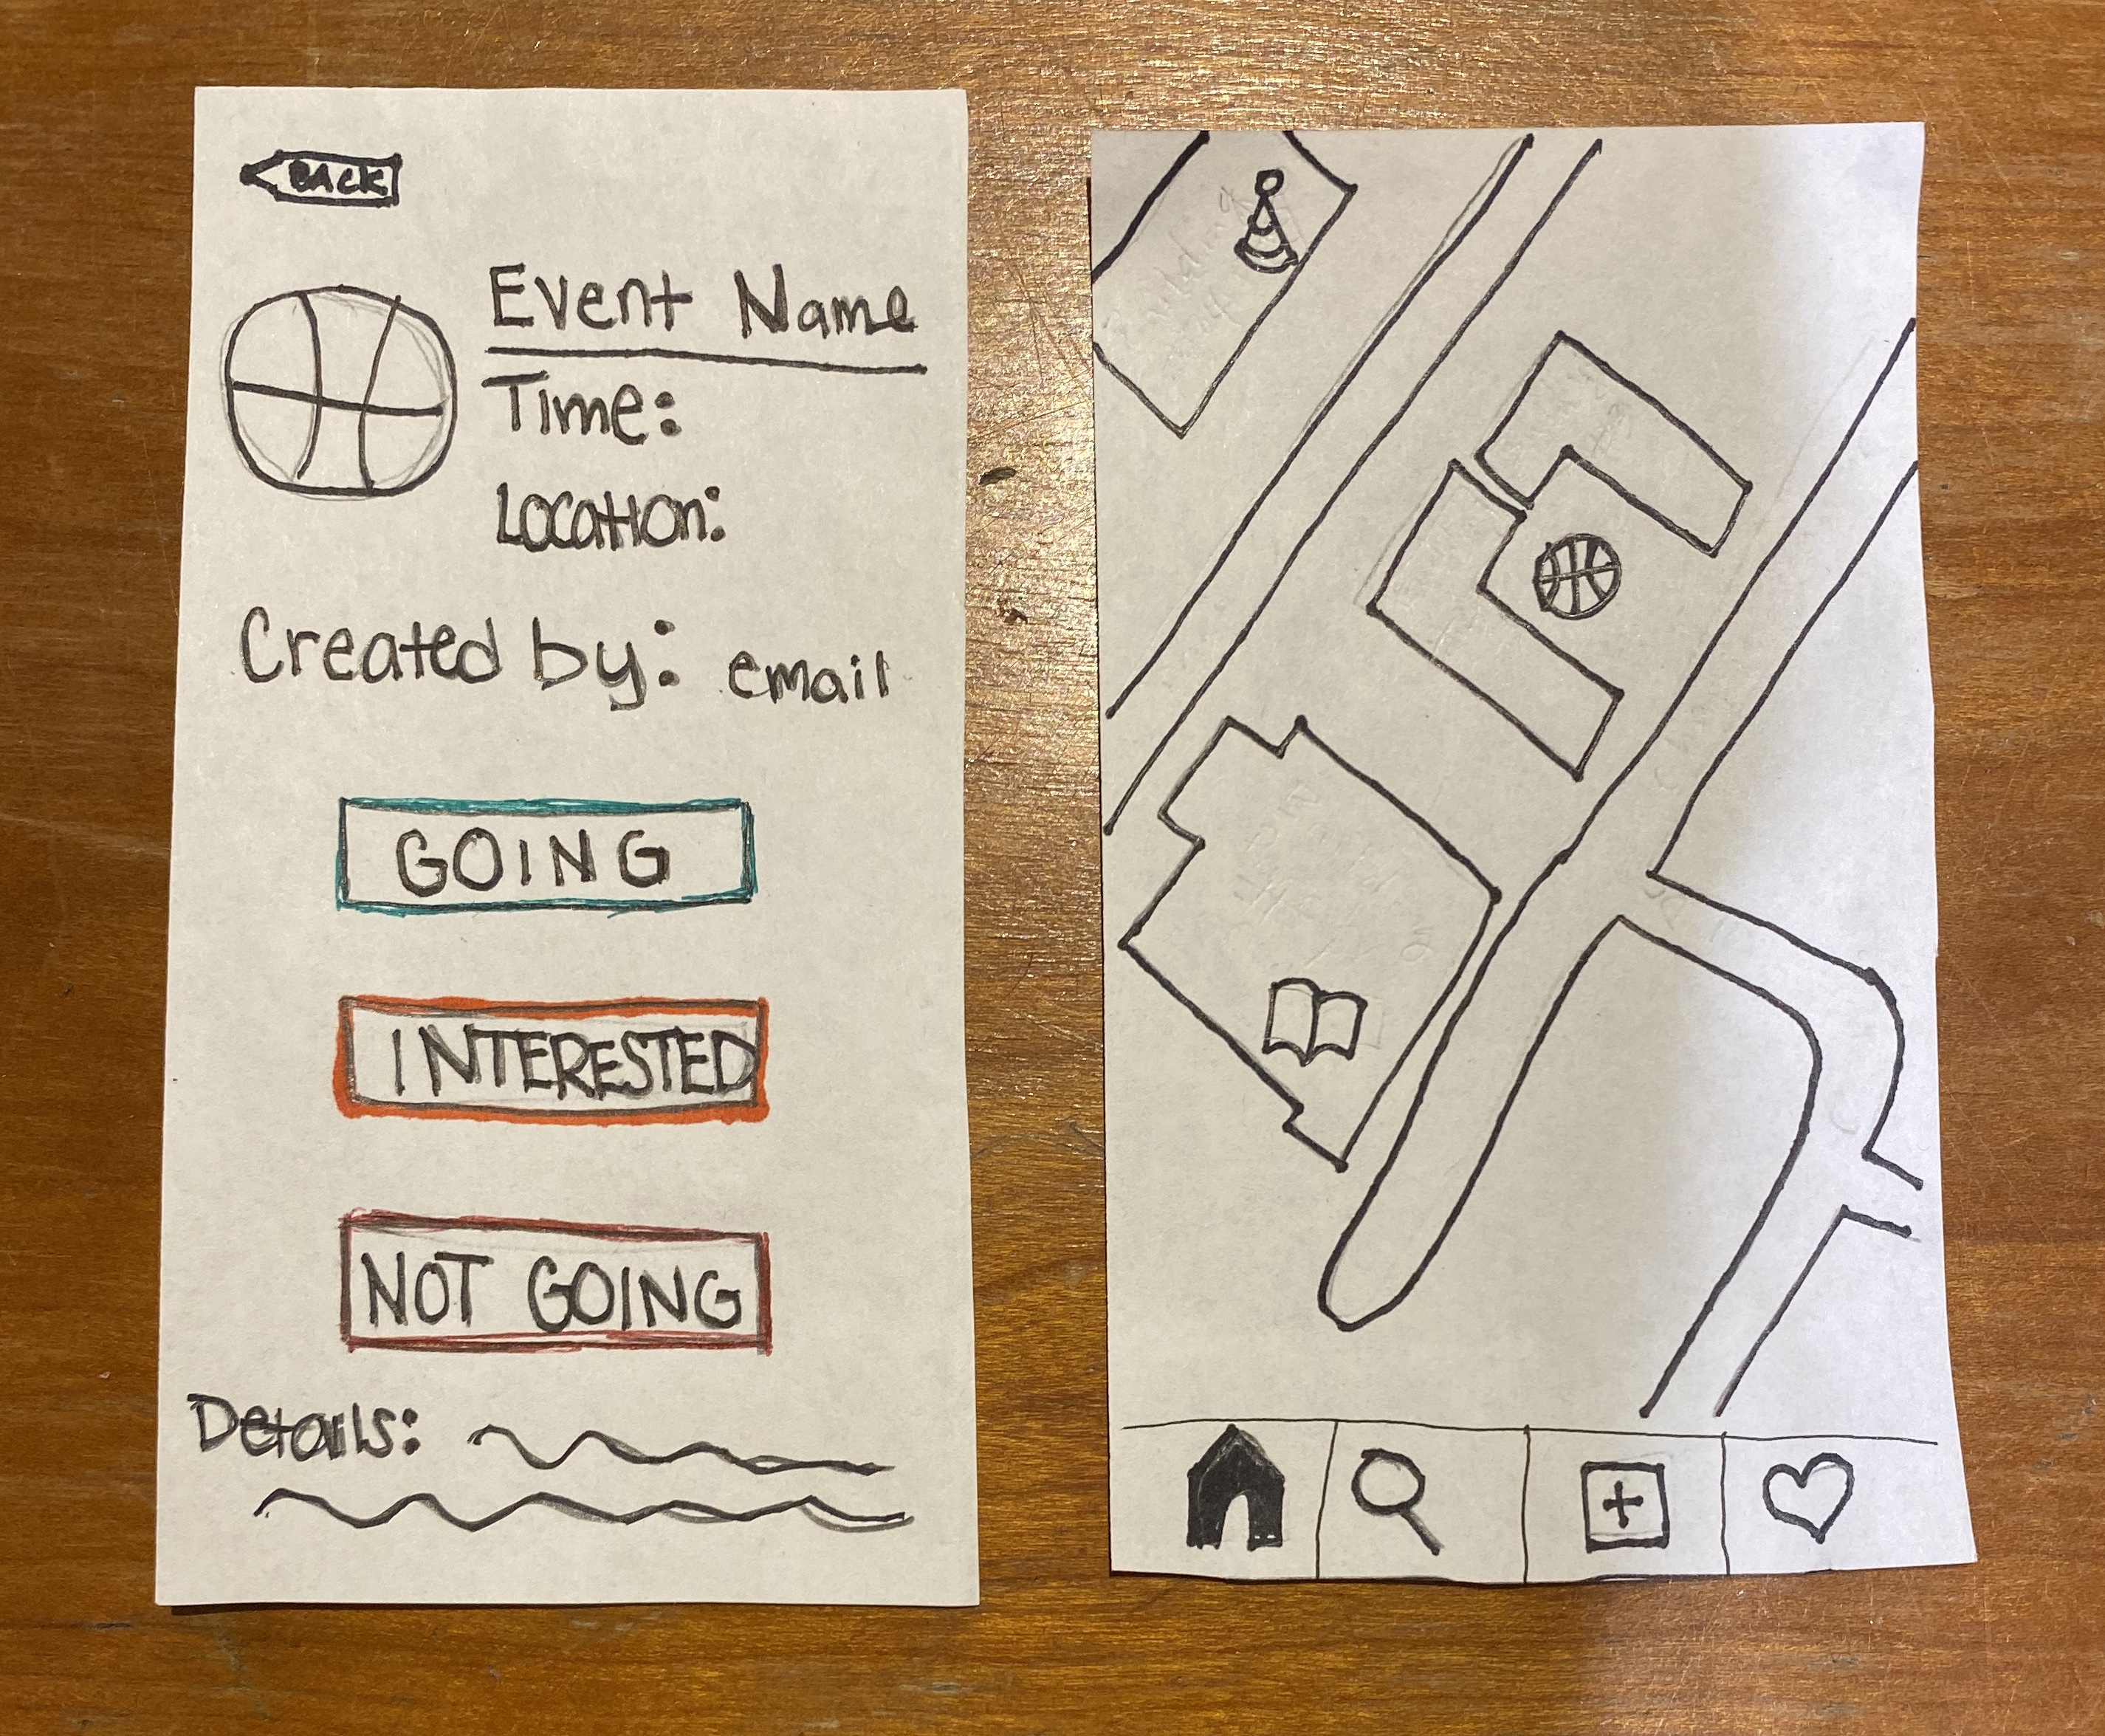 BACK
Event Name
Time:
Location:
Created by: email
GOING
INTERESTED
NOT GOING
Details: